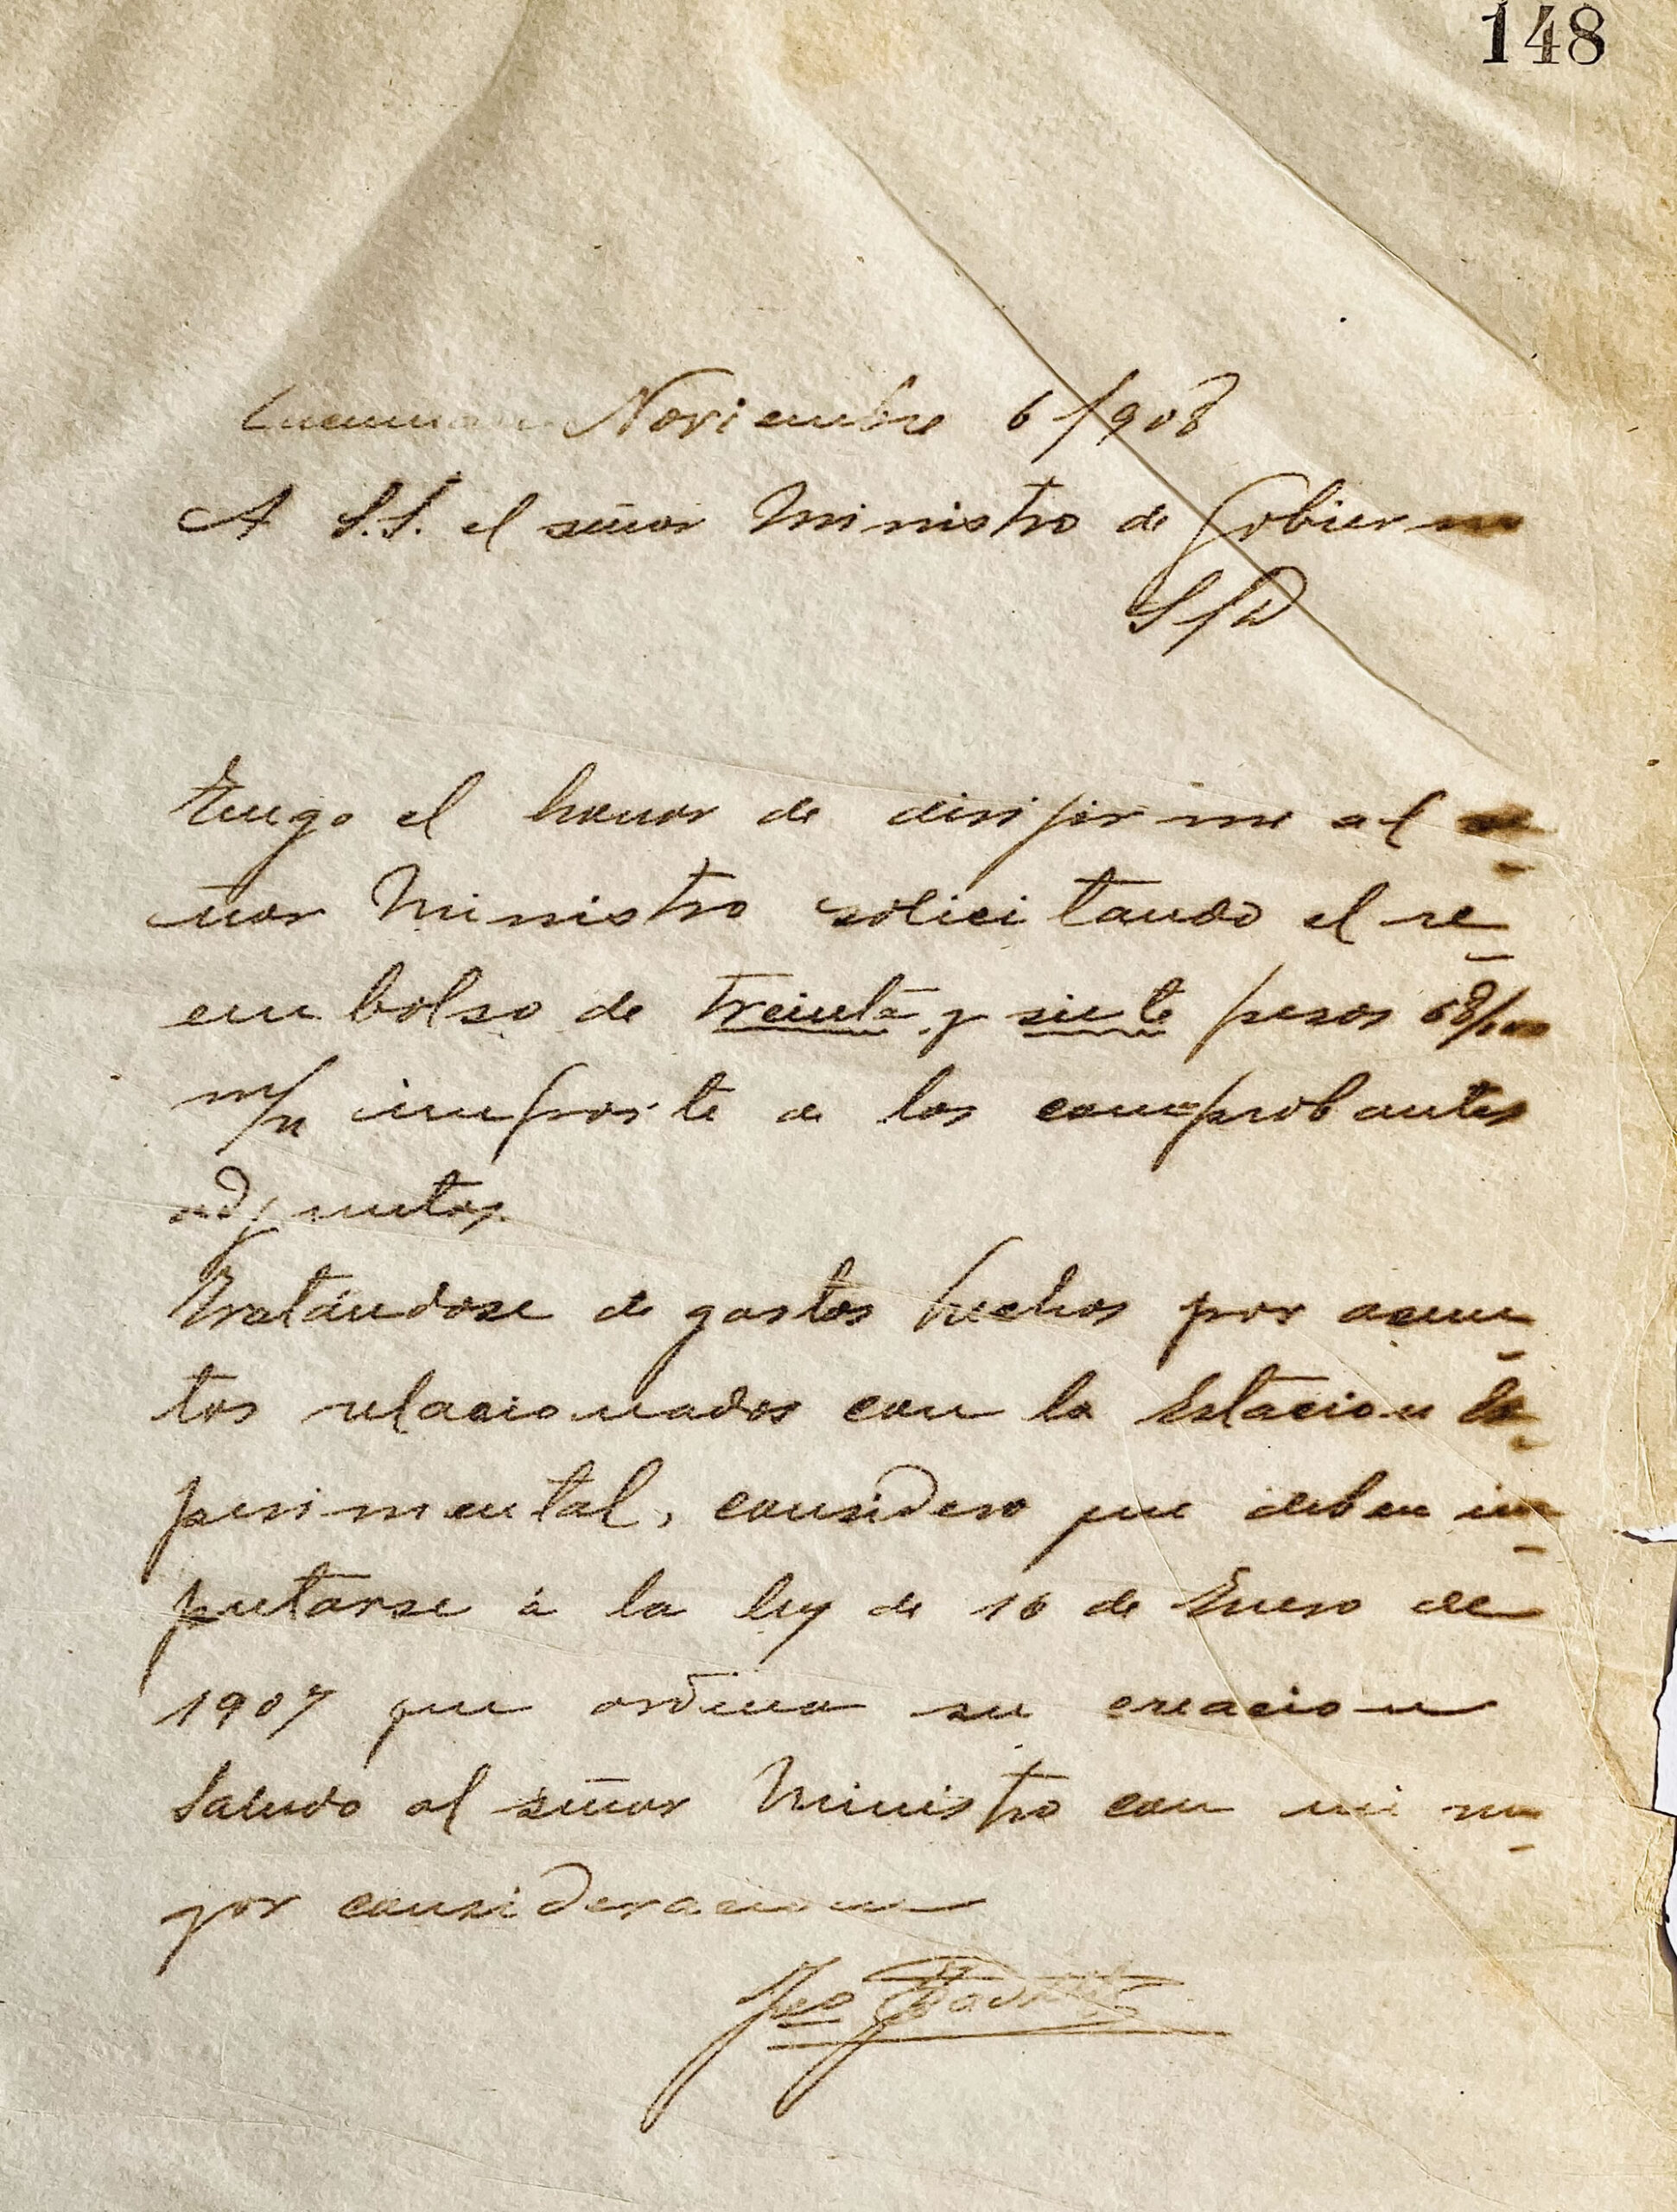 148
Tucuman Noviembre 6/908
A S.S. el señor Ministro de Gobierno
S/D
Tengo el honor de dirijirme al se-
ñor Ministro solicitando el re-
embolso de treinta y siete pesos 68/100
m/n importe de los comprobantes
adjuntos.
Tratándose de gastos hechos por asun-
tos relacionados con la Estacion Es-
perimental, considero que deben im-
putarse á la ley de 16 de Enero de
1907 que ordena su creacion
Saludo al señor Ministro con mi ma-
yor consideracion